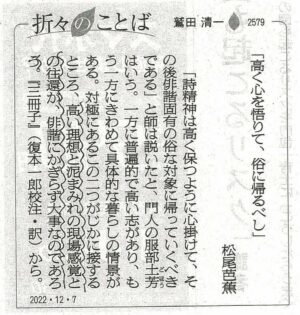 折々のことば
鷲田 清一
2579
「高く心を悟りて、俗に帰るべし」
松尾芭蕉
「詩精神は高く保つように心掛けて、そ
の後俳諧固有の俗な対象に帰っていくべき
である」と師は説いたと、門人の服部土芳
はいう。一方に普遍的で高い志があり、も
う一方にきわめて具体的な暮らしの情景が
ある。対極にあるこの二つがじかに接する
ところ、高い理想と泥まみれの現場感覚と
の往還が、俳諧にかぎらず大事なのであろ
う。『三冊子』(復本一郎校注・訳)から。
2022・12・7